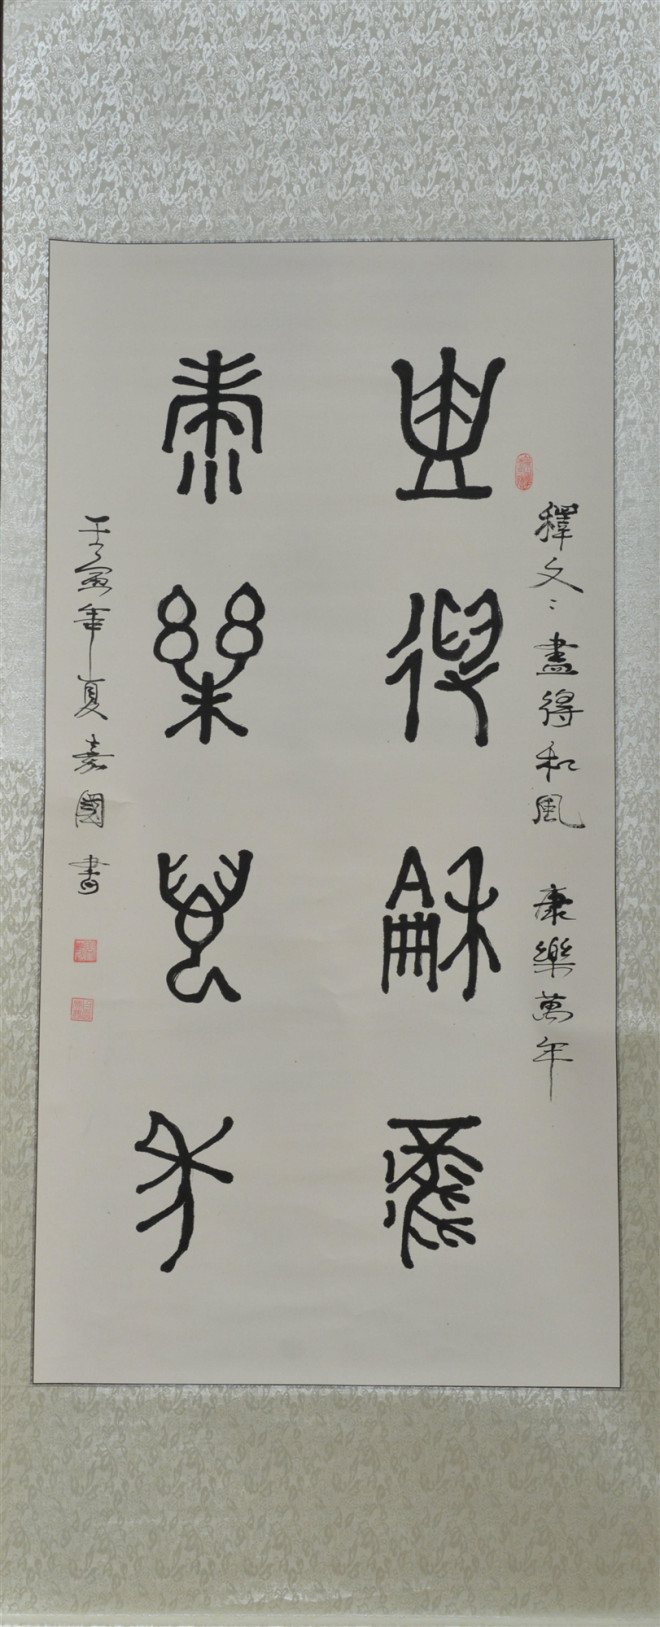 盡得龢風
康樂萬年
釋文：盡得和風 康樂萬年
壬寅年夏嘉國書